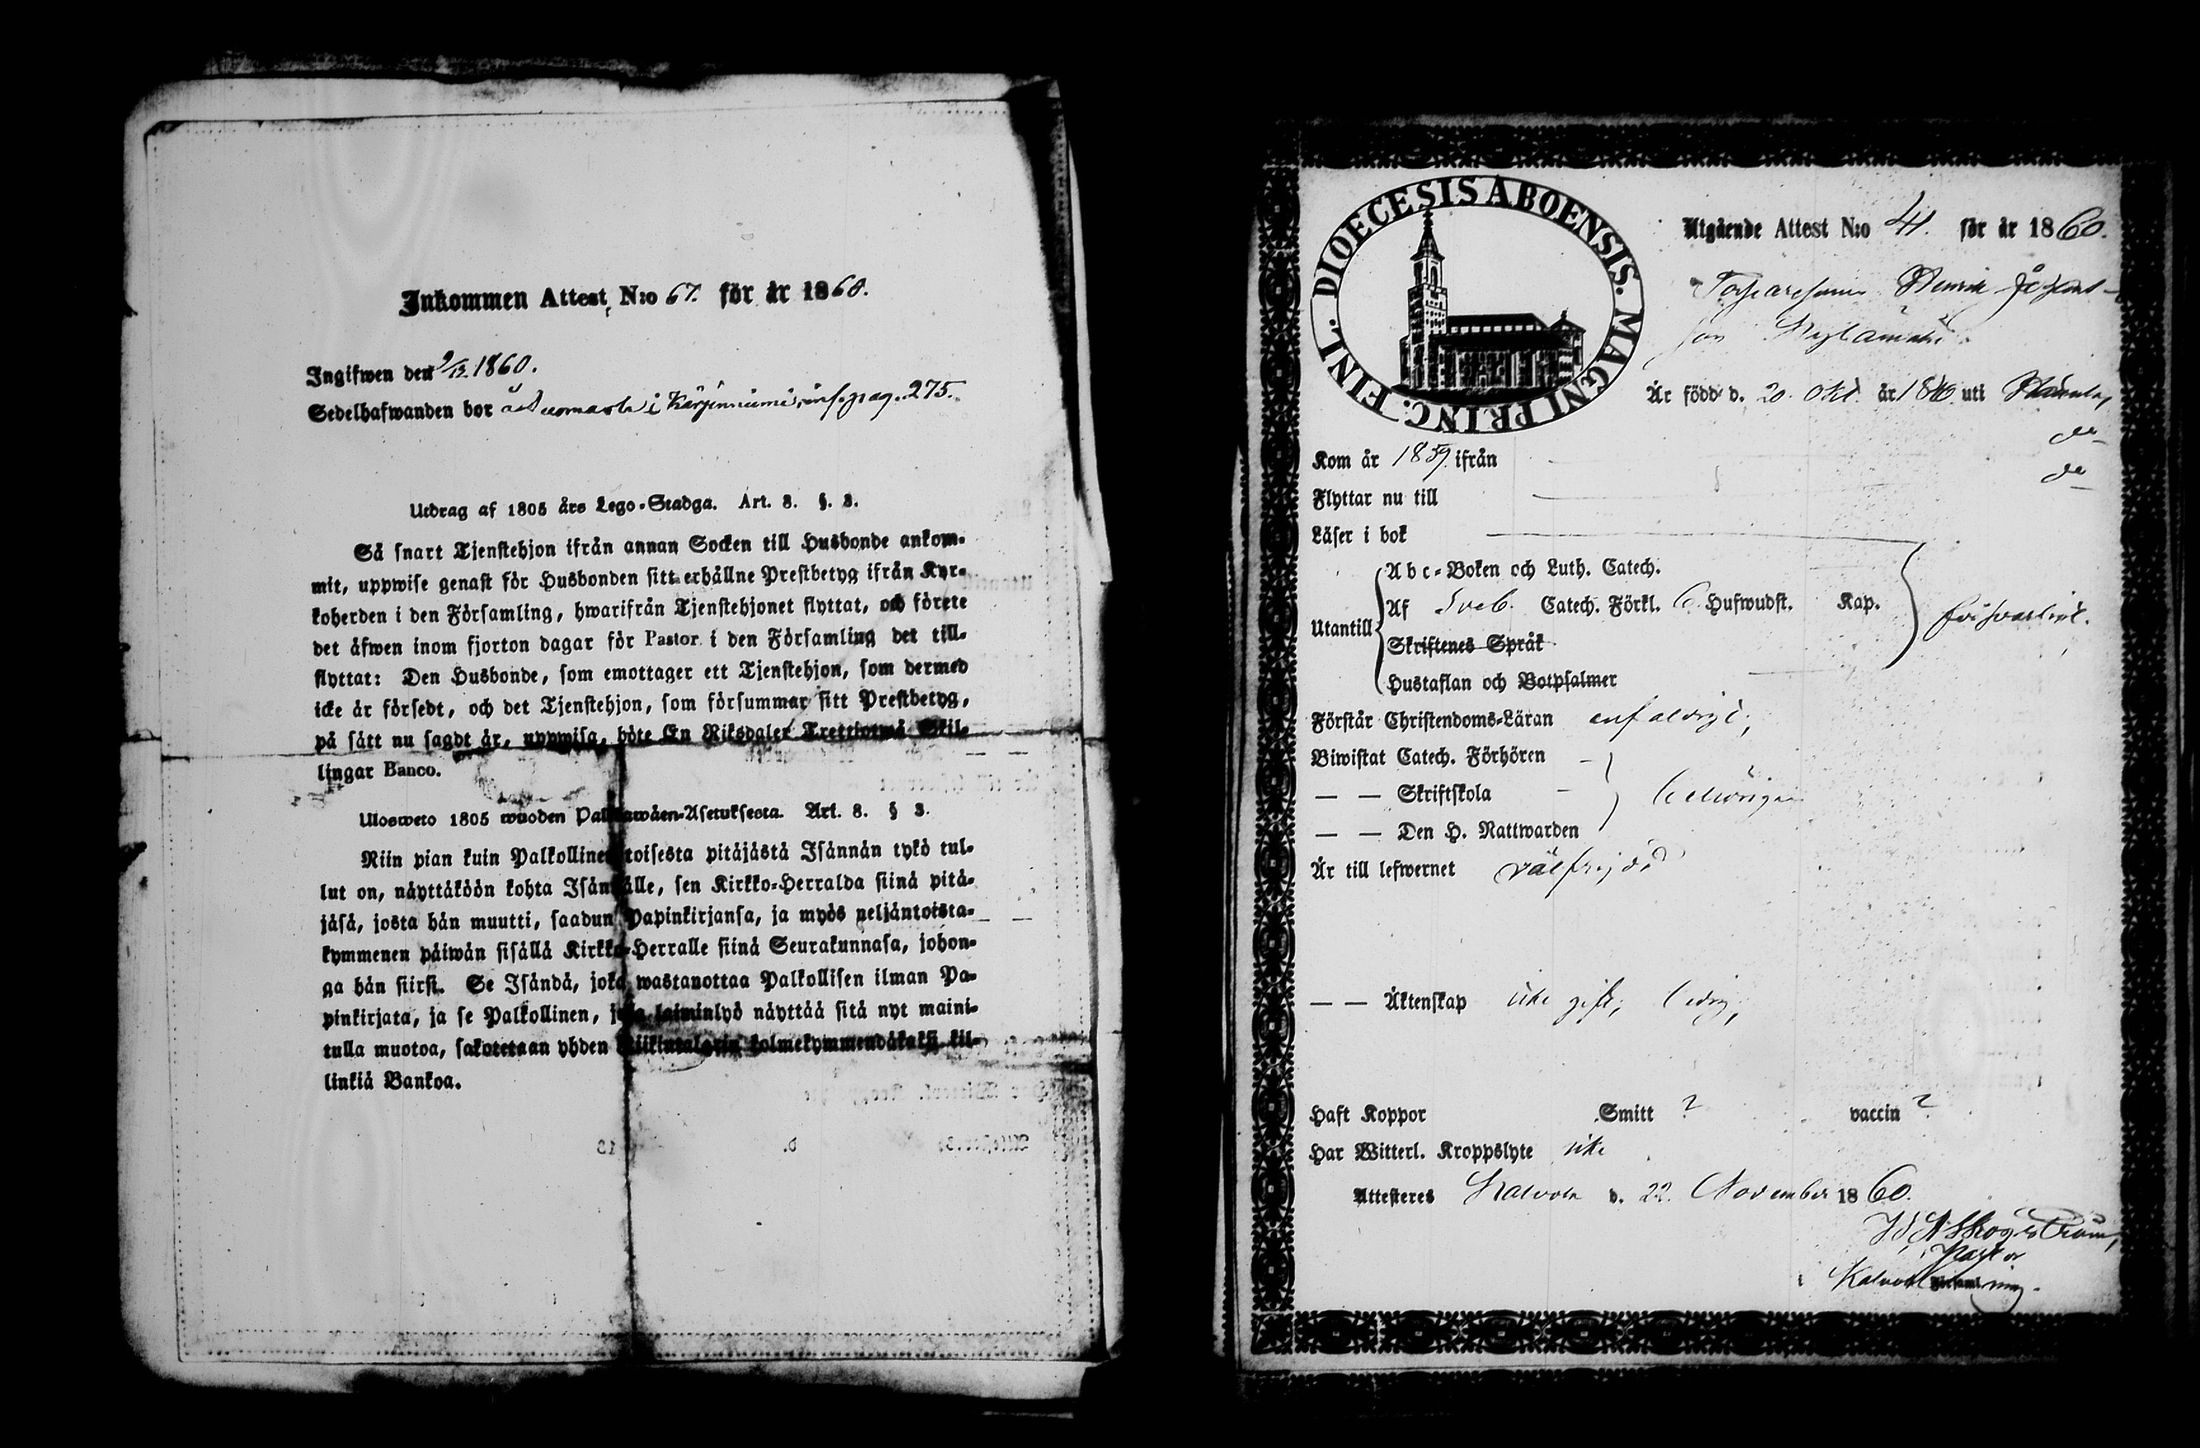 Inkommen Attest N:o 67. för år 1860.
Ingifwen den 9/12. 1860.
Sedelhafwanden bor i Kärjenniemi, inf. pag. 275.
Utdrag af 1805 års Lego-Stadga. Art. 8. §. 3.
Så snart Tjenstehjon ifrån annan Socken till Husbonde ankom-
mit, uppwise genast för Husbonden sitt erhållne Prestbetyg ifrån Kyr-
koherden i den Församling, hwarifrån Tjenstehjonet flyttat, och förete
det äfwen inom fjorton dagar för Pastor i den Församling det till-
flyttat: Den Husbonde, som emottager ett Tjenstehjon, som dermed
icke är försedt, och det Tjenstehjon, som försummar sitt Prestbetyg,
på sätt nu sagdt är, uppwisa, böte En Riksdaler Trettiotwå Skil-
lingar Banco.
Ulosweto 1805 wuoden Palkkawäen-Asetuksesta. Art. 8. § 3.
Niin pian kuin Palkollinen toisesta pitäjästä Isännän tykö tul-
lut on, näyttäköön kohta Isännälle, sen Kirkko-Herralda siinä pitä-
jäsä, josta hän muutti, saadun Papinkirjansa, ja myös neljäntoista-
kymmenen päiwän sisällä Kirkko-Herralle siinä Seurakunnasa, johon-
ga hän siirsi. Se Isändä, joka wastanottaa Palkollisen ilman Pa-
pinkirjata, ja se Palkollinen, joka laiminlyö näyttää sitä nyt maini-
tulla muotoa, sakotetaan yhden Riikintalarin kolmekymmendäkaksi kil-
linkiä Bankoa.
DIOECESIS ABOENSIS. MAGNI PRINC. FINL.
Utgående Attest N:o 41. för år 1860.
Torparesonen Henrik
son
Är född d. 20. Okt. år 1840 uti
Kom år 1859. ifrån do
Flyttar nu till do
Läser i bok
Utantill
Abc-Boken och Luth. Catech.
Af Sveb. Catech. Förkl. 6 Hufwudst. Kap.
Skriftenes Språk
Hustaflan och Botpsalmer
försvarligt.
Förstår Christendoms-Läran enfaldigt,
Biwistat Catech. Förhören
— — Skriftskola behörigen
— — Den H. Nattwarden
Är till lefwernet välfrejdad
— — Äktenskap icke gift, ledig,
Haft Koppor Smitt ? vaccin ?
Har Witterl. Kroppslyte icke
Attesteres Kalvola d. 22. November 1860.
Pastor
i Kalvola Församling.